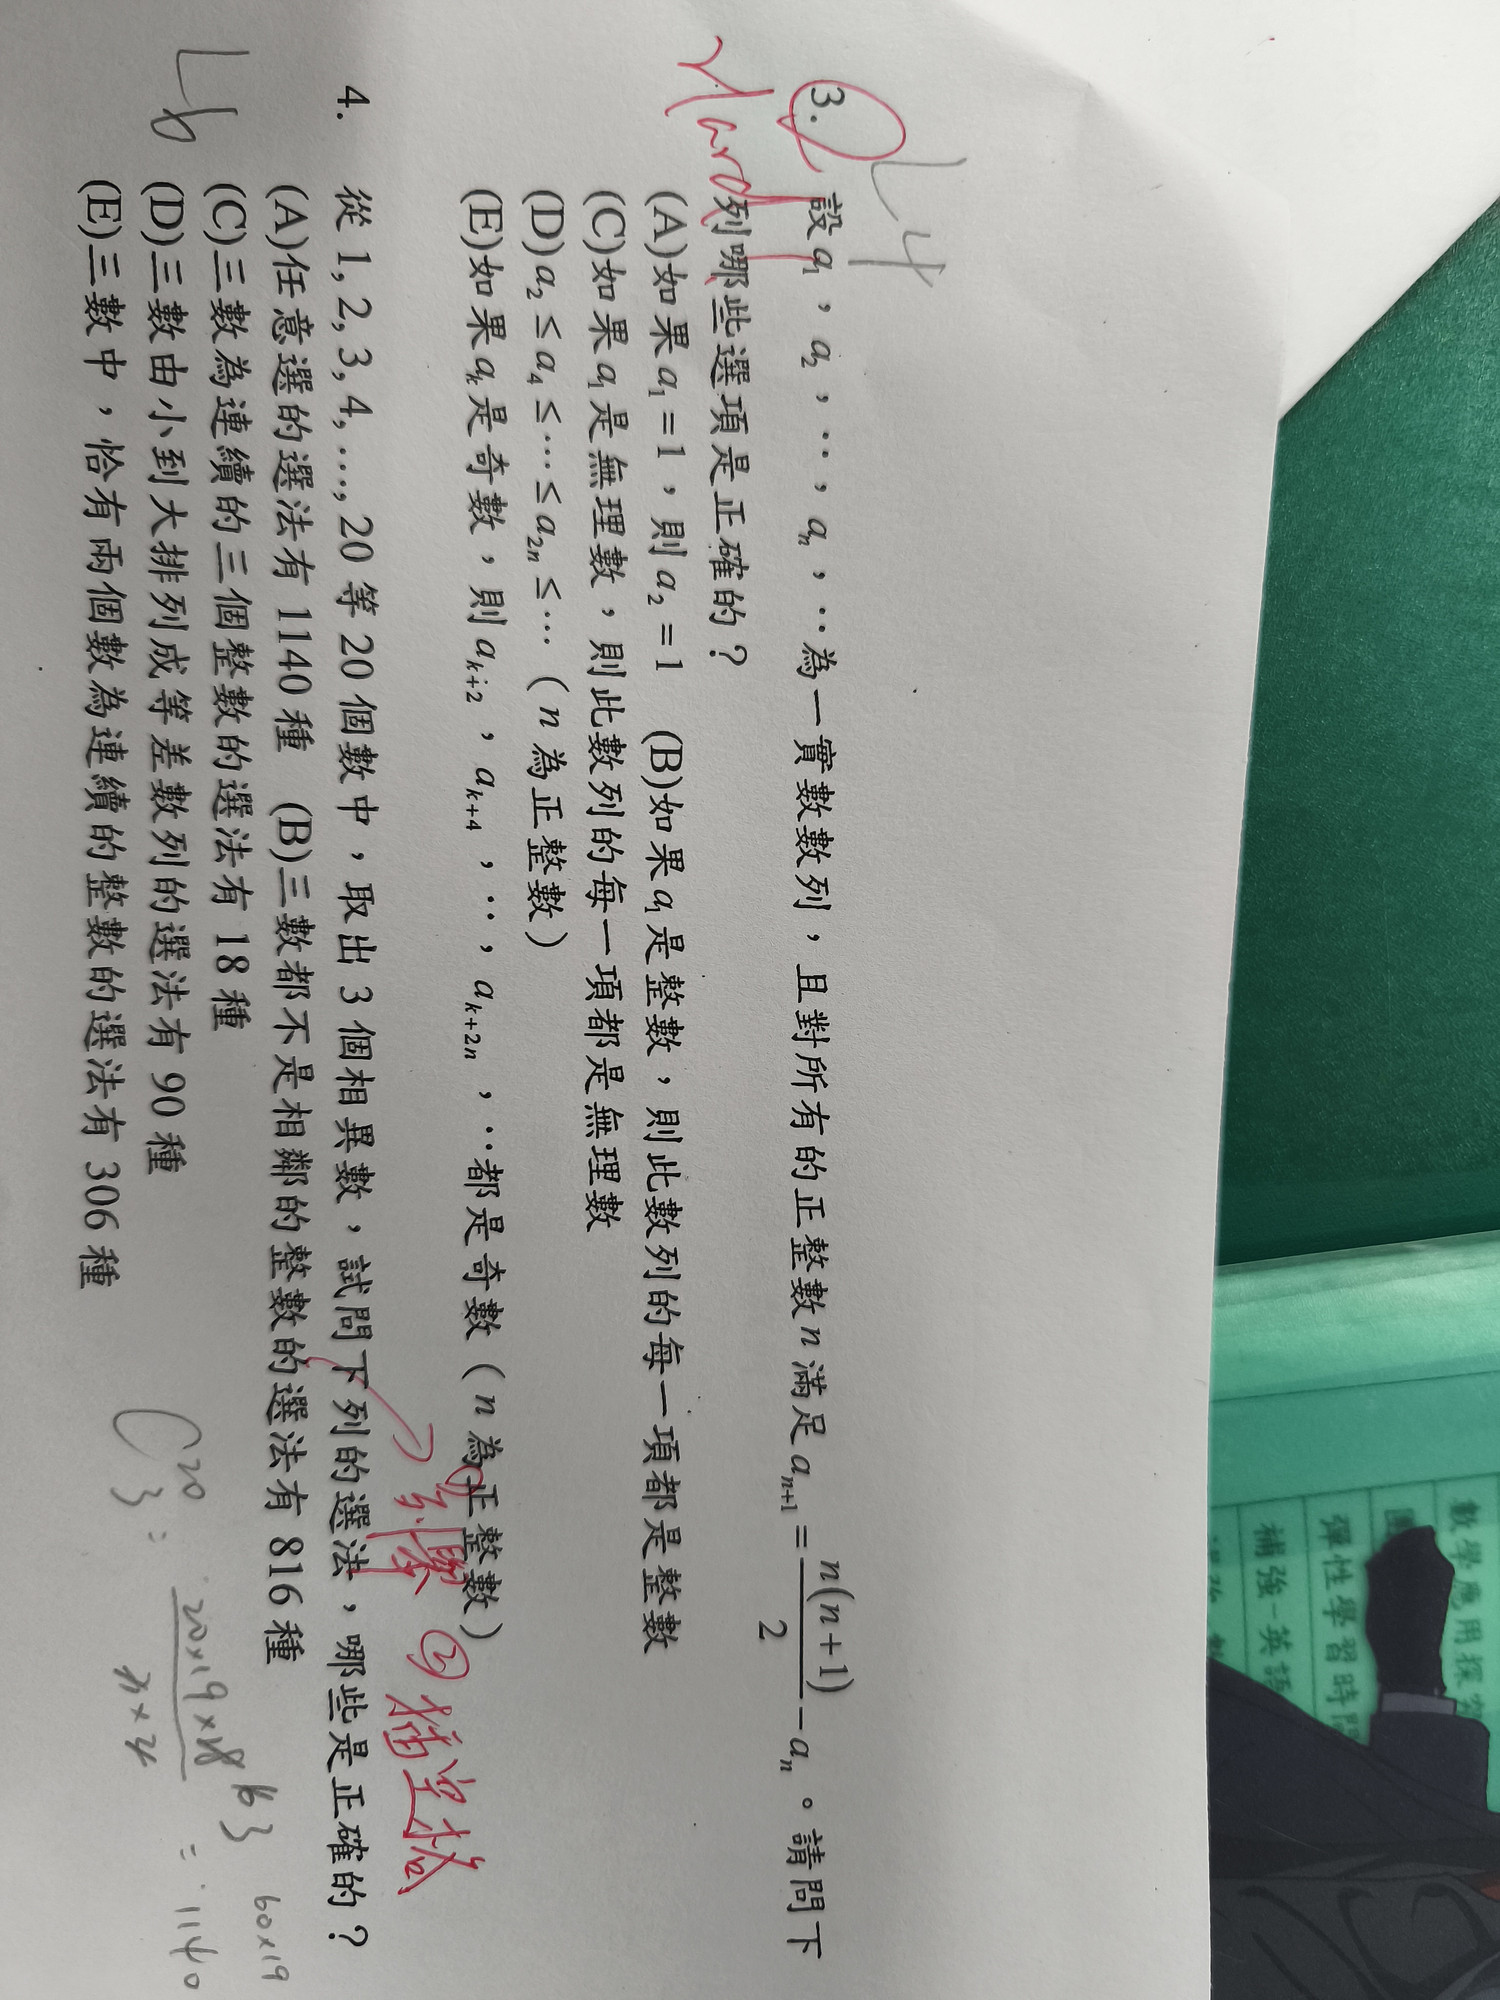 L4
3. 設a₁，a₂，⋯，aₙ，⋯為一實數數列，且對所有的正整數n滿足aₙ₊₁ = n(n+1)/2 − aₙ。請問下
Hard
列哪些選項是正確的？
(A)如果a₁=1，則a₂=1 (B)如果a₁是整數，則此數列的每一項都是整數
(C)如果a₁是無理數，則此數列的每一項都是無理數
(D)a₂ ≤ a₄ ≤ ⋯ ≤ a₂ₙ ≤ ⋯ （n為正整數）
(E)如果aₖ是奇數，則aₖ₊₂，aₖ₊₄，⋯，aₖ₊₂ₙ，⋯都是奇數（n為正整數）
②插空格
4. 從1, 2, 3, 4, …, 20等20個數中，取出3個相異數，試問下列的選法，哪些是正確的？
(A)任意選的選法有1140種 (B)三數都不是相鄰的整數的選法有816種
(C)三數為連續的三個整數的選法有18種
(D)三數由小到大排列成等差數列的選法有90種
(E)三數中，恰有兩個數為連續的整數的選法有306種
60×19
= 1140
數學應用探究
彈性學習時間
補強-英語